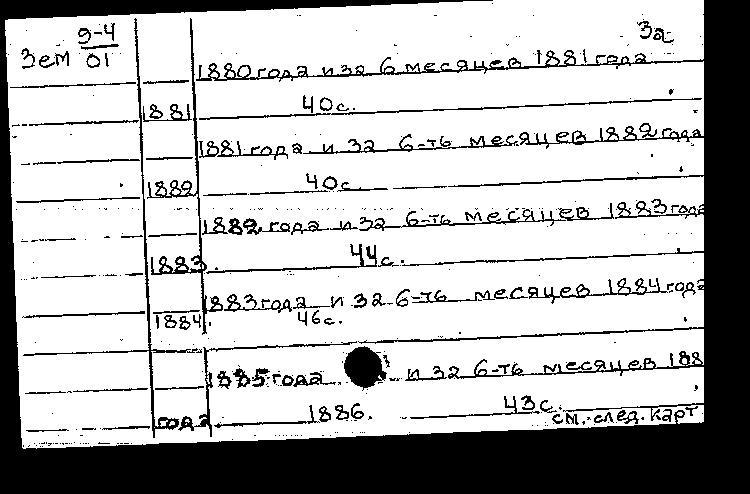 Зем 9-4/01
За
1880 года и за 6 месяцев 1881 года
1881 40 с.
1881 года и за 6-ть месяцев 1882 года
1882 40 с.
1882 года и за 6-ть месяцев 1883 года
1883. 44 с.
1883 года и за 6-ть месяцев 1884 года
1884. 46 с.
1885 года и за 6-ть месяцев 188
года. 1886. 43 с.
см. след. карт